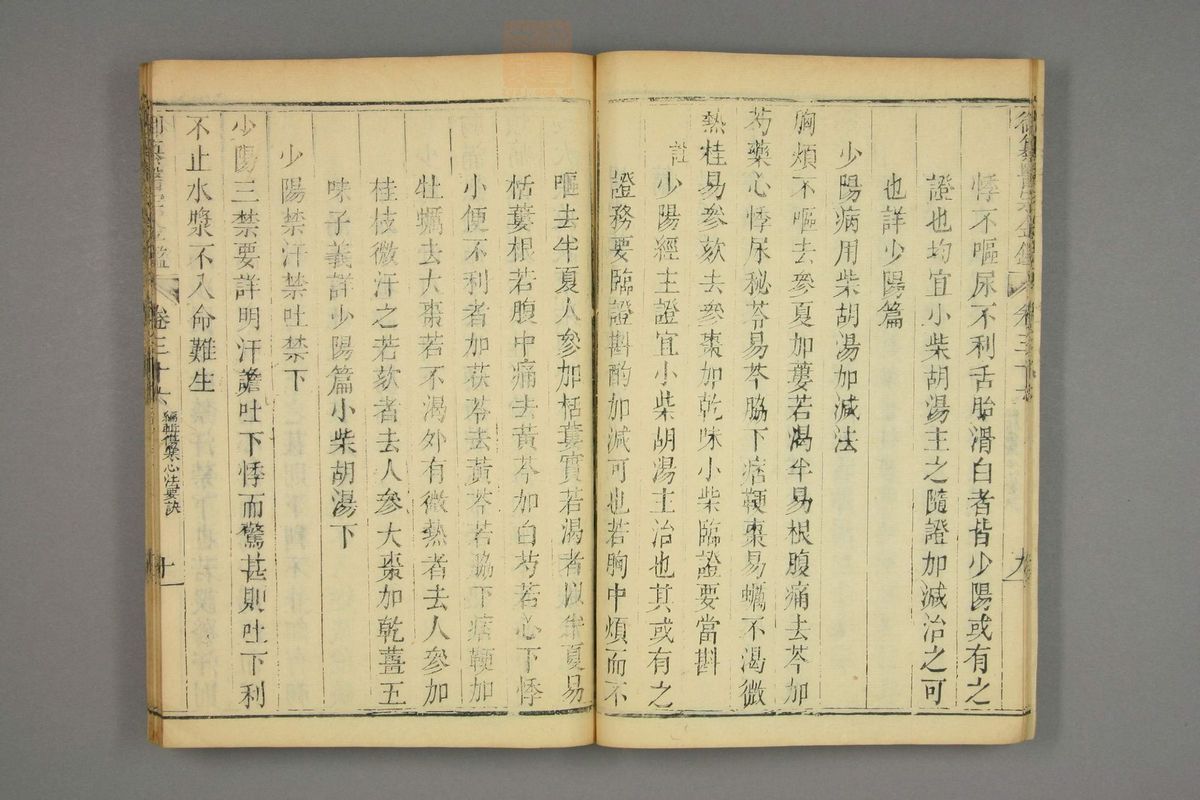 御纂醫宗金鑑 卷三十六 九
悸不嘔尿不利舌胎滑白者皆少陽或有之
證也均宜小柴胡湯主之隨證加減治之可
也詳少陽篇
少陽病用柴胡湯加減法
胸煩不嘔去參夏加蔞若渴半易根腹痛去芩加
芍藥心悸尿秘苓易芩脇下痞鞕棗易蠣不渴微
熱桂易參欬去參棗加乾味小柴臨證要當斟
註少陽經主證宜小柴胡湯主治也其或有之
證務要臨證斟酌加減可也若胸中煩而不
嘔去半夏人參加栝蔞實若渴者以半夏易
栝蔞根若腹中痛去黃芩加白芍若心下悸
小便不利者加茯苓去黃芩若脇下痞鞕加
牡蠣去大棗若不渴外有微熱者去人參加
桂枝微汗之若欬者去人參大棗加乾薑五
味子義詳少陽篇小柴胡湯下
少陽禁汗禁吐禁下
少陽三禁要詳明汗譫吐下悸而驚甚則吐下利
不止水漿不入命難生
御纂醫宗金鑑 卷三十六 編輯傷寒心法要訣 十